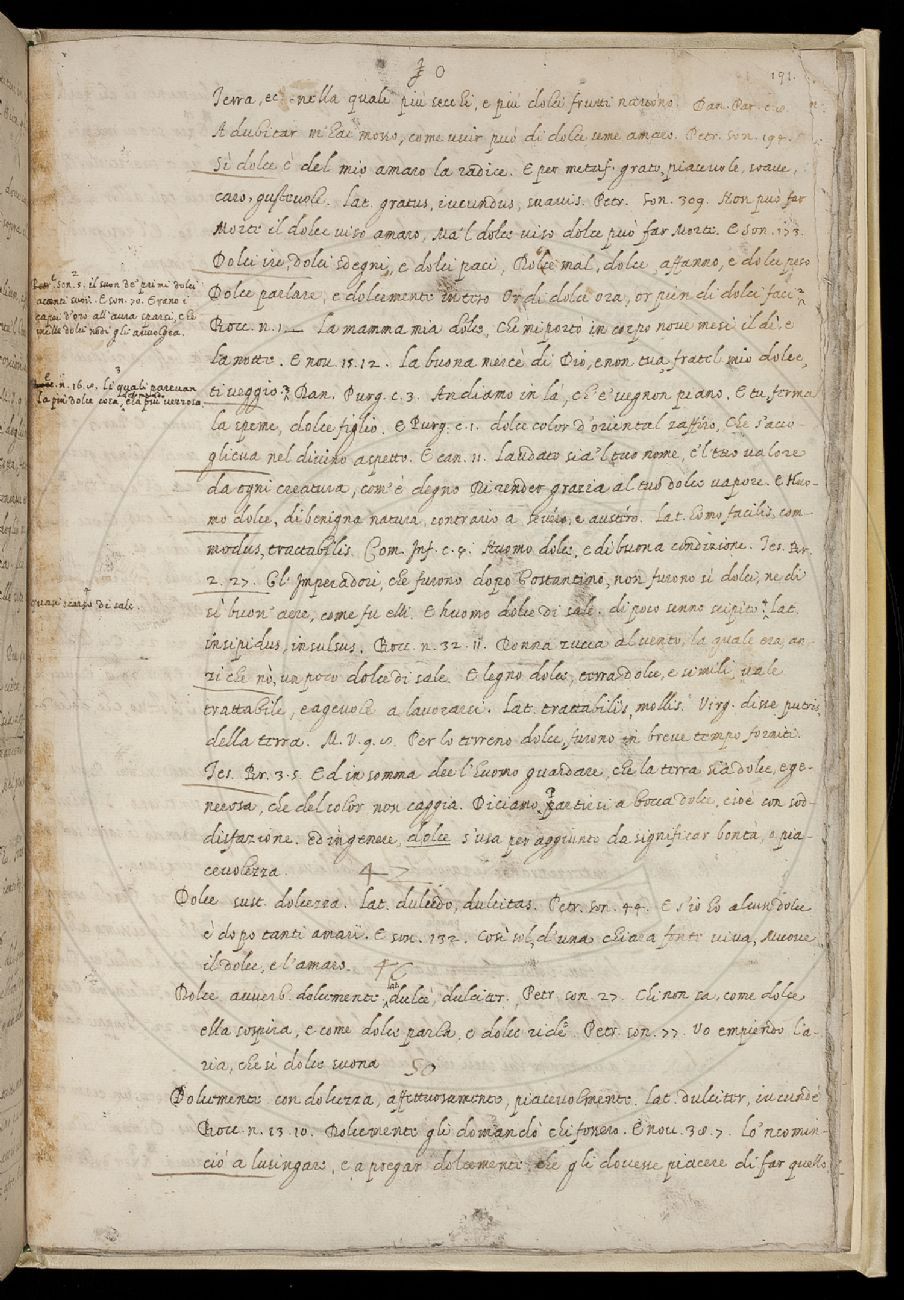 DO
191.
Terra, ec. nella quale più secchi, e più dolci frutti nascono. Dan. Par. c.
A dubitar m'hai mosso, come uscir può di dolce seme amaro. Petr. Son. 194.
Sì dolce è del mio amaro la radice. E per metaf. grato, piacevole, soave,
caro, gustevole. Lat. gratus, iucundus, suavis. Petr. Son. 309. Non può far
Morte il dolce viso amaro, Ma'l dolce viso dolce può far Morte. E Son. 173.
Dolci ire, dolci sdegni, e dolci paci, Dolce mal, dolce affanno, e dolce peso
Dolce parlare, e dolcemente inteso Or di dolce ora, or pien di dolci faci
Bocc. n. La mamma mia dolce, che mi portò in corpo nove mesi il dì, e
la notte. E nov. 15.12. La buona mercè di Dio, e non tua, fratel mio dolce
ti veggio. Dan. Purg. c. 3. Andiamo in là, ch'e' vegnon piano, E tu, ferma
la speme, dolce figlio. E Purg. c. 1. dolce color d'oriental zaffiro, Che s'acco-
glieva nel dicino aspetto. E can. 11. Laudato sia'l tuo nome, e'l tuo valore
da ogni creatura, com'è degno Di render grazia al tuo dolce vapore. E Huo-
mo dolce, di benigna natura, contrario a severo, e austero. Lat. homo facilis, com-
modus, tractabilis. Com. Inf. c. 4. Huomo dolce, e di buona condizione. Tes. Br.
2. 27. Gl'Imperadori, che furono dopo Costantino, non furono sì dolci, ne di
sì buon'aere, come fu elli. E huomo dolce di sale. di poco senno scipito. Lat.
insipidus, insulsus. Bocc. n. 32. 11. Donna zucca al vento, la quale era, an-
zi che nò, un poco dolce di sale. E legno dolce, terra dolce, e simili, vale
trattabile, e agevole a lavorarsi. Lat. trattabilis, mollis. Virg. disse putris,
della terra. M. V. 9. Per lo terreno dolce, furono in breve tempo forniti.
Tes. Br. 3. 5. Ed in somma dee l'huomo guardare, che la terra sia dolce, e ge-
nerosa, che del color non caggia. Diciamo, partirsi a bocca dolce, cioè con sod-
disfazione. Ed in genere, dolce s'usa per aggiunto da significar bontà, o pia-
cevolezza. 47
Dolce sust. dolcezza. Lat. dulcedo, dulcitas. Petr. Son. 44. E s'io ho alcun dolce
è dopo tanti amari. E son. 132. Così sol, d'una chiara fonte viva, Muove
il dolce, e l'amaro. 46
Dolce avverb. dolcemente, lat. dulcè, dulciter. Petr. son. 27. Chi non sa, come dolce
ella sospira, e come dolce parla, e dolce ride. Petr. son. 77. Vo empiendo l'a-
ria, che sì dolce suona 50
Dolcemente con dolcezza, affettuosamente, piacevolmente. Lat. dulciter, iucundè
Bocc. n. 13. 10. Dolcemente gli domandò chi fonero. E nov. 38. 7. Lo 'ncomin-
ciò a lusingare, e a pregar dolcemente che gli dovesse piacere di far quello
Petr. son. 5. il suon de' primi dolci
acenti suoi. E son. 70. Erano i
capei d'oro all'aura sparsi, che
in mille dolci nodi gli avvolgea.
n. 16. le quali parevan
la più dolce cosa, e la più vezzosa
scarso di sale.